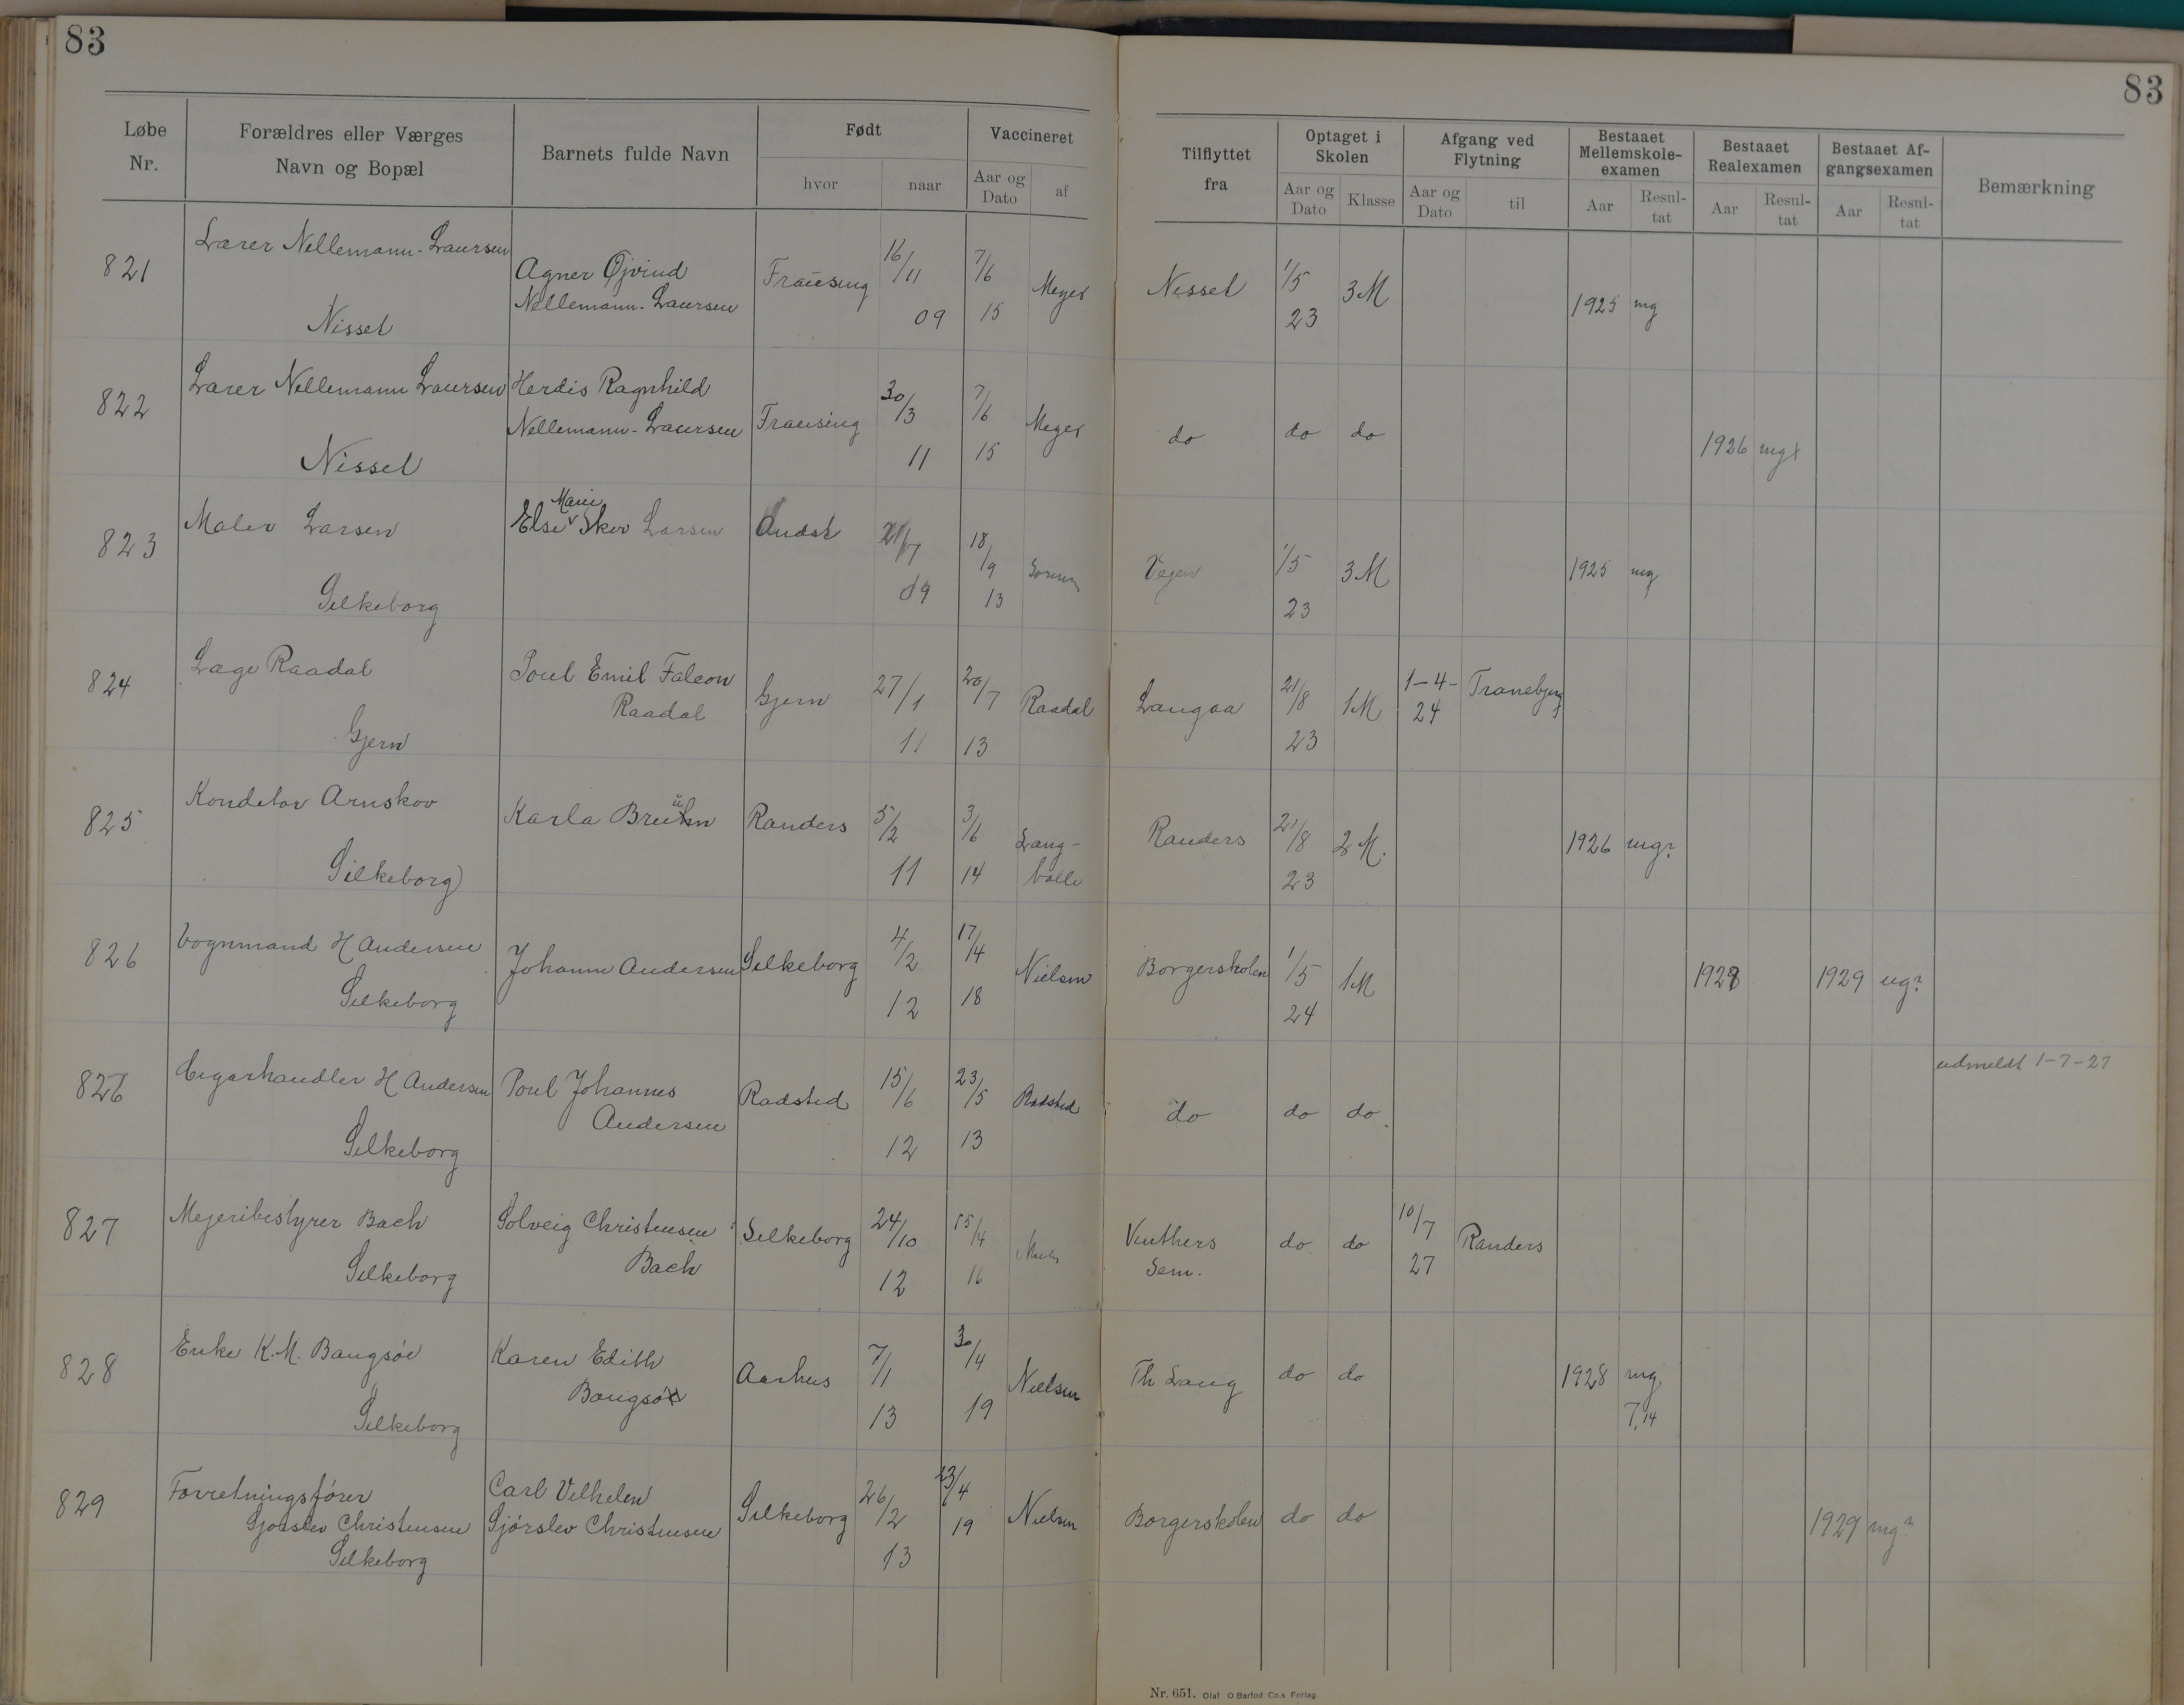 83
83
Løbe Nr.
Forældres eller Værges Navn og Bopæl
Barnets fulde Navn
Født
hvor
naar
Vaccineret
Aar og Dato
af
Tilflyttet fra
Optaget i Skolen
Aar og Dato
Klasse
Afgang ved Flytning
Aar og Dato
til
Bestaaet Mellemskole-examen
Aar
Resul-tat
Bestaaet Realexamen
Aar
Resul-tat
Bestaaet Af-gangsexamen
Aar
Resul-tat
Bemærkning
821 Lærer Nellemann-Laursen Nissel Agner Øjvind Nellemann-Laursen Frausing 16/11 09 7/6 15 Meyer Nissel 1/5 23 3M 1925 mg
822 Lærer Nellemann Laursen Nissel Herdis Ragnhild Nellemann-Laursen Frausing 30/3 11 7/6 15 Meyer do do do 1926 mg+
823 Maler Larsen Silkeborg Else Marie Skov Larsen Andst 21/7 09 18/9 13 Vejen 1/5 23 3M 1925 mg
824 Læge Raadal Gjern Poul Emil Falcon Raadal Gjern 27/1 11 20/7 13 Raadal Langaa 21/8 23 1M 1-4-24 Tranebjerg
825 Konditor Arnskov Silkeborg Karla Brühn Randers 5/2 11 3/6 14 Lang-balle Randers 21/8 23 2M. 1926 mg?
826 Vognmand H Andersen Silkeborg Johanne Andersen Silkeborg 4/2 12 17/4 18 Nielsen Borgerskolen 1/5 24 1M 1928 1929 ug?
826 Cigarhandler H Andersen Silkeborg Poul Johannes Andersen Radsted 15/6 12 23/5 13 Radsted do do do. udmeldt 1-7-27
827 Mejeribestyrer Bach Silkeborg Solveig Christensen Bach Silkeborg 24/10 12 15/4 16 Vinthers Sem. do do 10/7 27 Randers
828 Enke K.M. Bangsøe Silkeborg Karen Edith Bangsø Aarhus 7/1 13 30/4 19 Nielsen Th Lang do do 1928 mg 7,14
829 Forretningsfører Gjørslev Christensen Silkeborg Carl Vilhelm Gjørslev Christensen Silkeborg 26/2 13 23/4 19 Nielsen Borgerskolen do do 1929 mg?
Nr. 651. Olaf O Barfod Co.s Forlag.